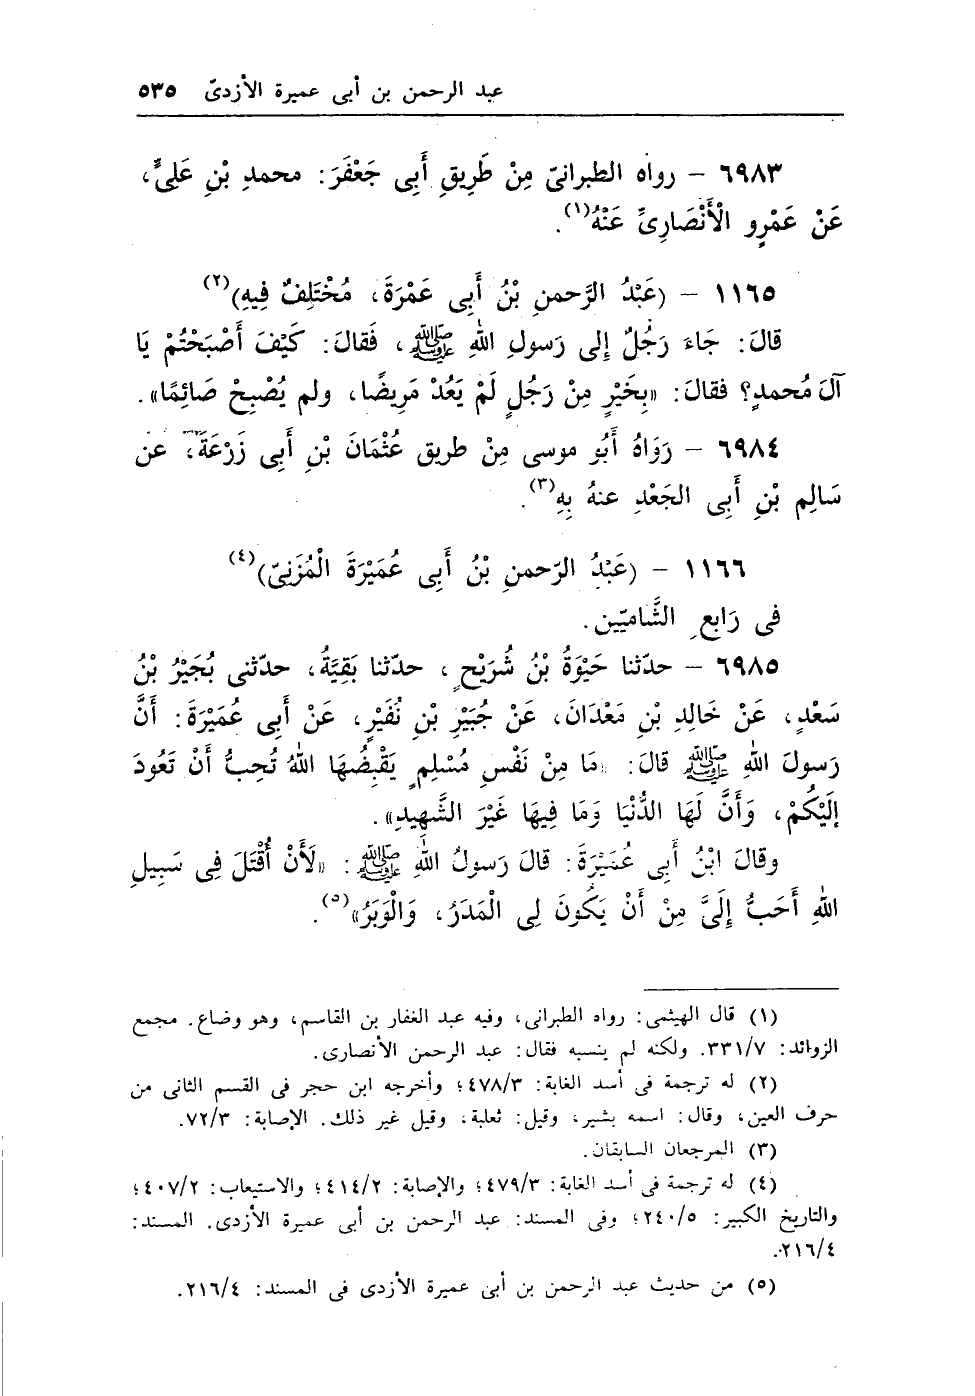 عبد الرحمن بن أبى عميرة الأزدىّ ٥٣٥
٦٩٨٣ – رواه الطبرانىّ مِنْ طَرِيقِ أَبِى جَعْفَرَ: محمدِ بْنِ عَلِىٍّ،
عَنْ عَمْرٍو الْأَنْصَارِىِّ عَنْهُ(١).
١١٦٥ – (عَبْدُ الرَّحمنِ بْنُ أَبِى عَمْرَةَ، مُخْتَلِفٌ فِيهِ)(٢)
قالَ: جَاءَ رَجُلٌ إِلى رَسولِ اللهِ ﷺ، فَقالَ: كَيْفَ أَصْبَحْتُمْ يَا
آلَ مُحمدٍ؟ فقالَ: «بِخَيْرٍ مِنْ رَجُلٍ لَمْ يَعُدْ مَرِيضًا، ولم يُصْبِحْ صَائِمًا».
٦٩٨٤ – رَوَاهُ أَبُو موسى مِنْ طريق عُثْمَانَ بْنِ أَبِى زَرْعَةَ، عن
سَالِم بْنِ أَبِى الجَعْدِ عنهُ بِهِ(٣).
١١٦٦ – (عَبْدُ الرّحمنِ بْنُ أَبِى عُمَيْرَةَ الْمُزَنِىّ)(٤)
فى رَابعِ الشَّاميّين.
٦٩٨٥ – حدّثنا حَيْوَةُ بْنُ شُرَيْحٍ، حدّثنا بَقِيَّةُ، حدّثنى بُجَيْرُ بْنُ
سَعْدٍ، عَنْ خَالِدِ بْنِ مَعْدَانَ، عَنْ جُبَيْرِ بْنِ نُفَيْرٍ، عَنْ أَبِى عُمَيْرَةَ: أَنَّ
رَسولَ اللهِ ﷺ قالَ: «مَا مِنْ نَفْسِ مُسْلِمٍ يَقْبِضُهَا اللهُ تُحِبُّ أَنْ تَعُودَ
إِلَيْكُمْ، وَأَنَّ لَهَا الدُّنْيَا وَمَا فِيهَا غَيْرَ الشَّهِيدِ».
وقالَ ابْنُ أَبِى عُمَيْرَةَ: قالَ رَسولُ اللهِ ﷺ: «لَأَنْ أُقْتَلَ فِى سَبِيلِ
اللهِ أَحَبُّ إِلَىَّ مِنْ أَنْ يَكُونَ لِى الْمَدَرُ، وَالْوَبَرُ»(٥).
(١) قال الهيثمى: رواه الطبرانى، وفيه عبد الغفار بن القاسم، وهو وضاع. مجمع
الزوائد: ٣٣١/٧. ولكنه لم ينسبه فقال: عبد الرحمن الأنصارى.
(٢) له ترجمة فى أسد الغابة: ٤٧٨/٣؛ وأخرجه ابن حجر فى القسم الثانى من
حرف العين، وقال: اسمه بشير، وقيل: ثعلبة، وقيل غير ذلك. الإصابة: ٧٢/٣.
(٣) المرجعان السابقان.
(٤) له ترجمة فى أسد الغابة: ٤٧٩/٣؛ والإصابة: ٤١٤/٢؛ والاستيعاب: ٤٠٧/٢؛
والتاريخ الكبير: ٢٤٠/٥؛ وفى المسند: عبد الرحمن بن أبى عميرة الأزدى. المسند:
٢١٦/٤.
(٥) من حديث عبد الرحمن بن أبى عميرة الأزدى فى المسند: ٢١٦/٤.